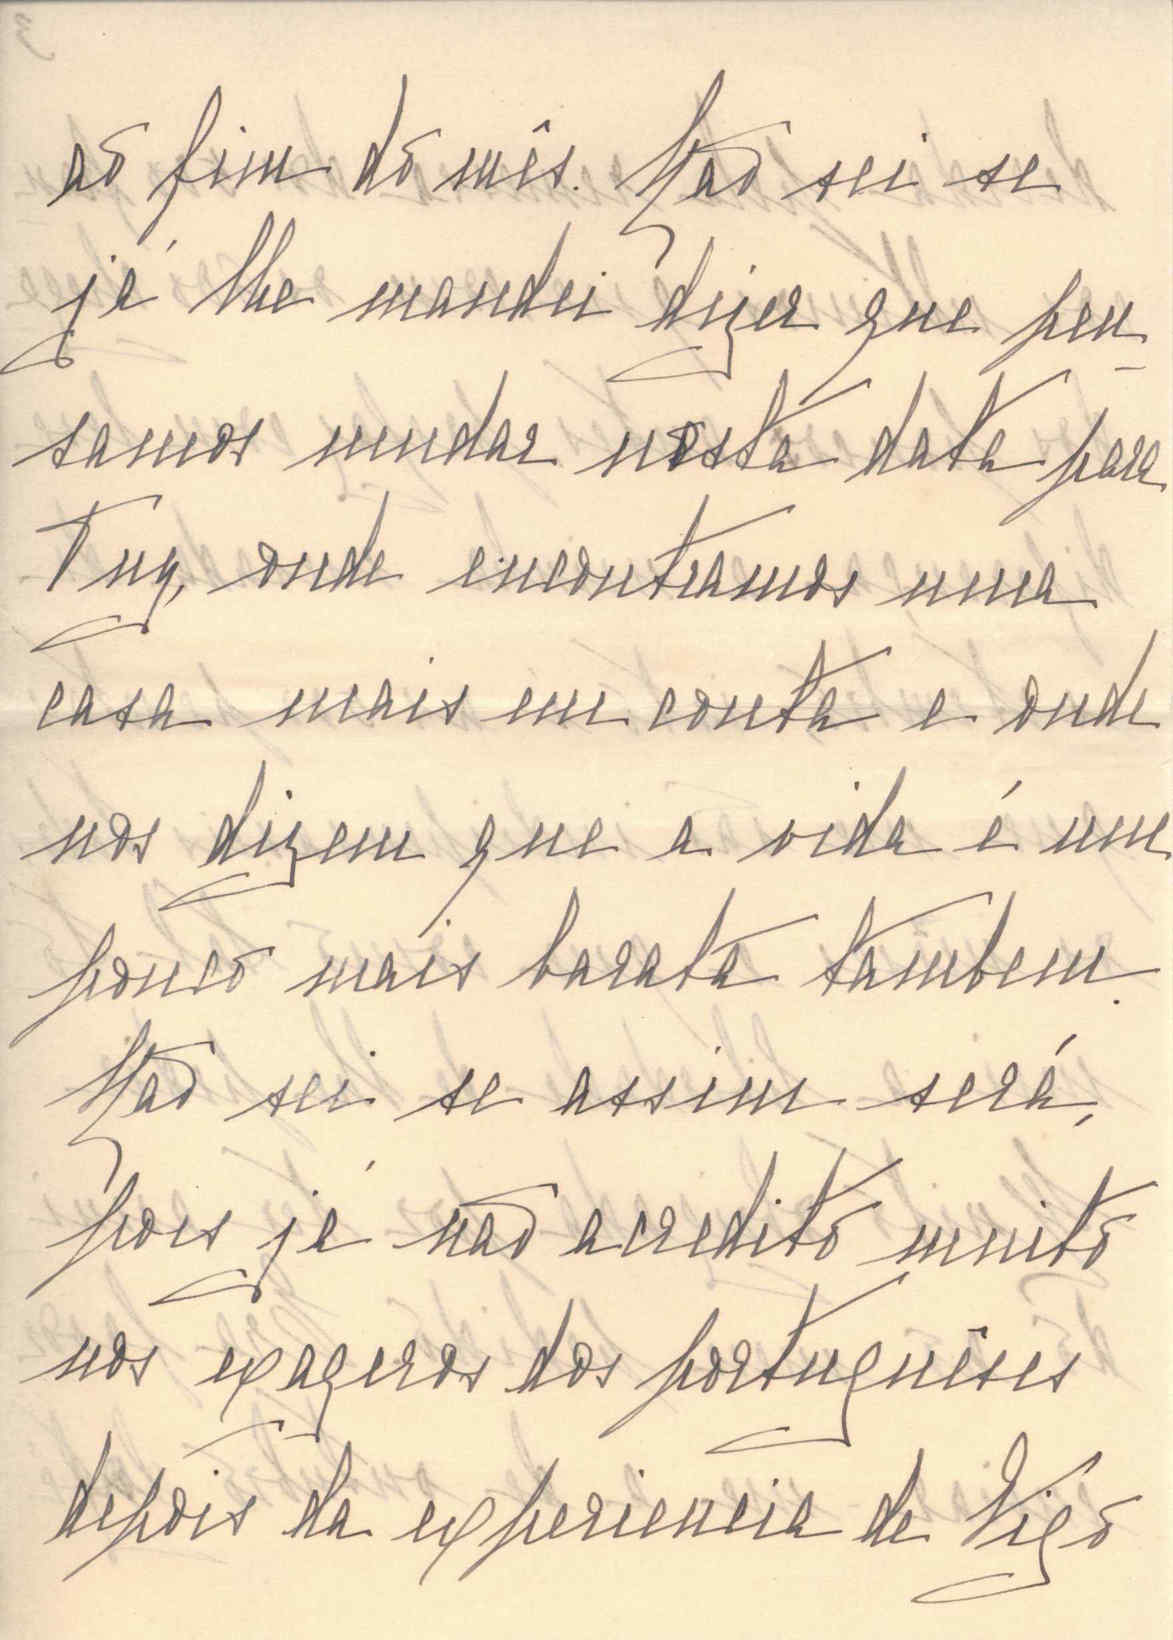 ao fim do mês. Não sei se
já lhe mandei dizer que pen-
samos mudar nesta data para
Tuy, onde encontramos uma
casa mais em conta e onde
nos dizem que a vida é um
pouco mais barata tambem.
Não sei se assim será,
pois já não acredito muito
nos exageros dos portuguêses
depois da experiencia de Vigo